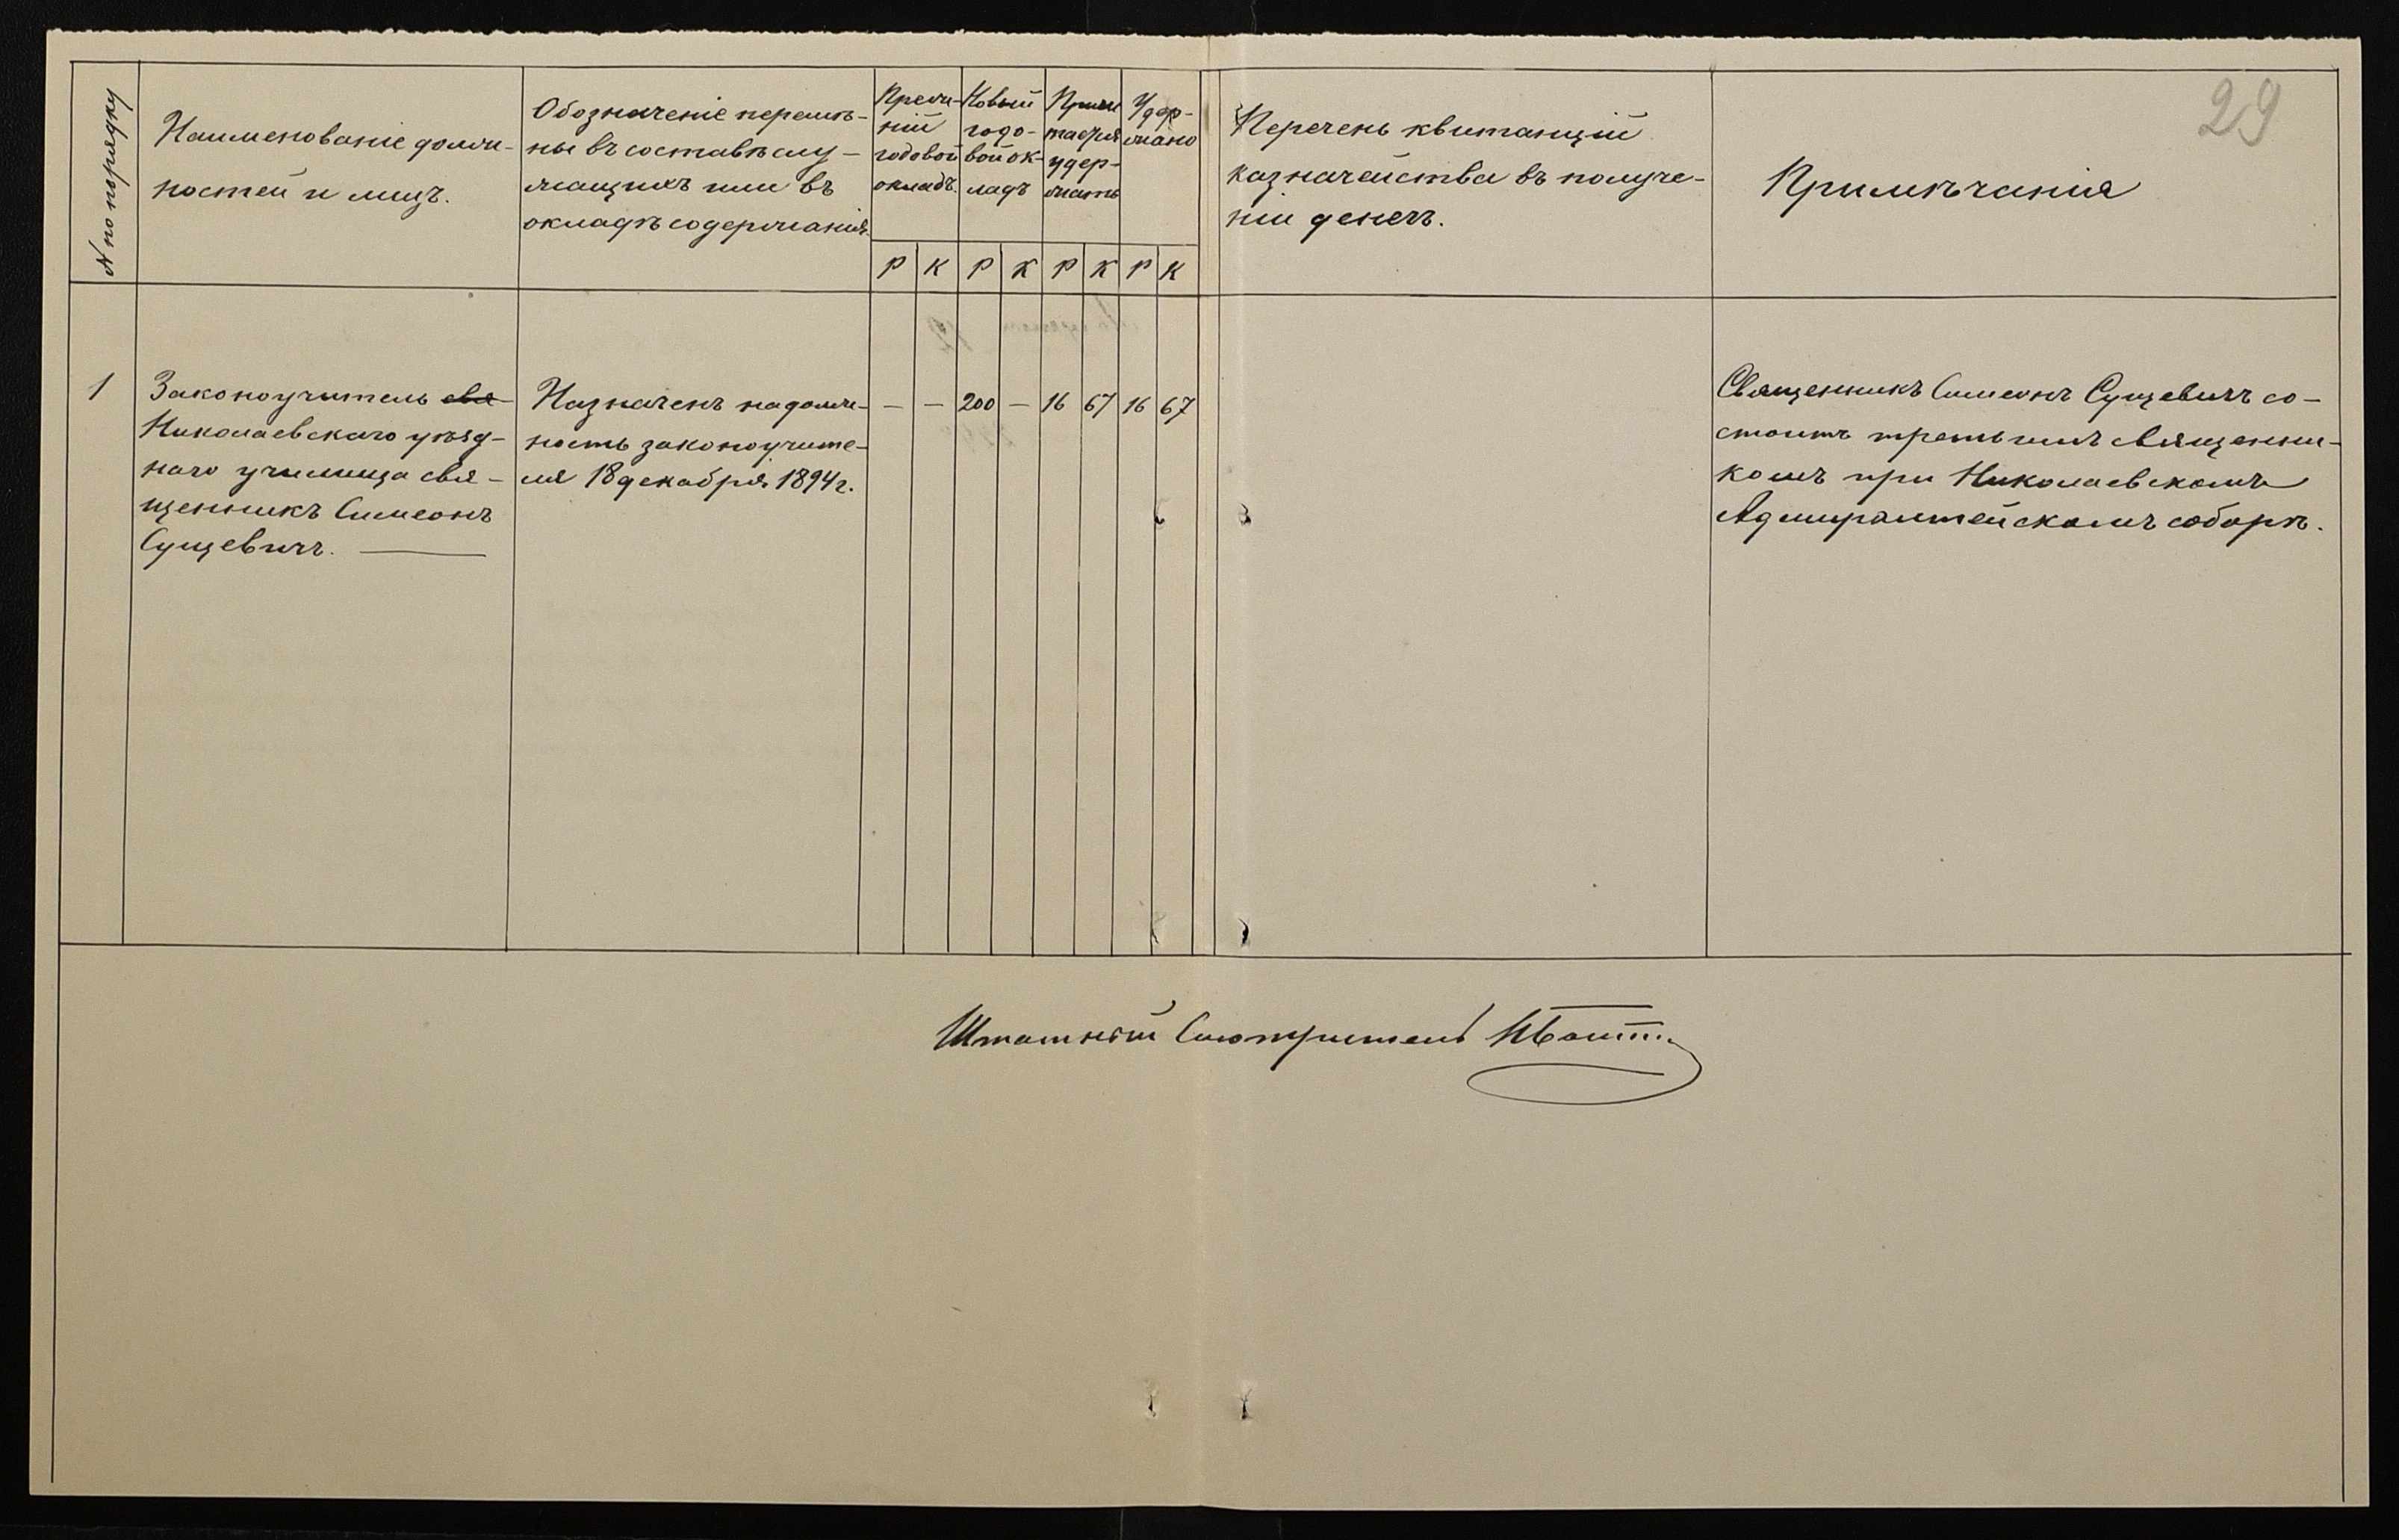 29
№ по порядку
Наименованіе долж-
ностей и лицъ.
Обозначеніе перемѣ-
ны въ составѣ слу-
жащихъ или въ
окладѣ содержанія.
Преж-
ній
годовой
окладъ.
Новый
годо-
вой ок-
ладъ
Причи
тается
удер-
жать
Удер-
жано
Перечень квитанцій
казначейства въ получе-
ніи денегъ.
Примѣчанія
Р К Р К Р К Р К
1
Законоучитель свя
Николаевскаго уѣзд-
наго училища свя-
щенникъ Симеонъ
Сущевичъ.
Назначенъ на долж-
ность законоучите-
ля 18 декабря 1894 г.
— — 200 — 16 67 16 67
Священникъ Симеонъ Сущевичъ со-
стоитъ третьимъ священни-
комъ при Николаевскомъ
Адмиралтейскомъ соборѣ.
Штатный Смотритель